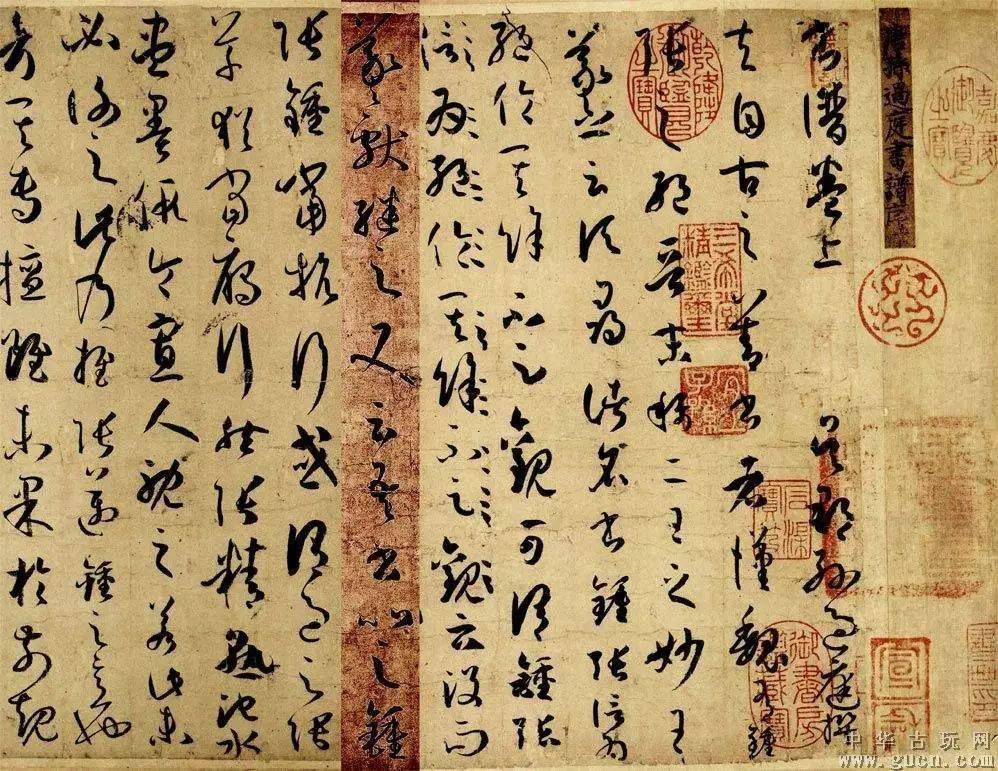 嘉慶御覽之寶
唐孫過庭書譜序
書譜卷上 吳郡孫過庭撰
夫自古之善書者漢魏有鍾
張之絕晉末稱二王之妙王
羲之云頃尋諸名書鍾張信為
絕倫其餘不足觀可謂鍾張
信為絕倫其餘不足觀云沒而
羲獻繼之又云吾書比之鍾
張鍾當抗行或謂過之張
草猶當雁行然張精熟池水
盡墨假令寡人耽之若此未
必謝之此乃推張邁鍾之意也
考其專擅雖未果於前規
乾隆御覽之寶
三希堂精鑑璽
宜子孫
中华古玩网
www.gucn.com